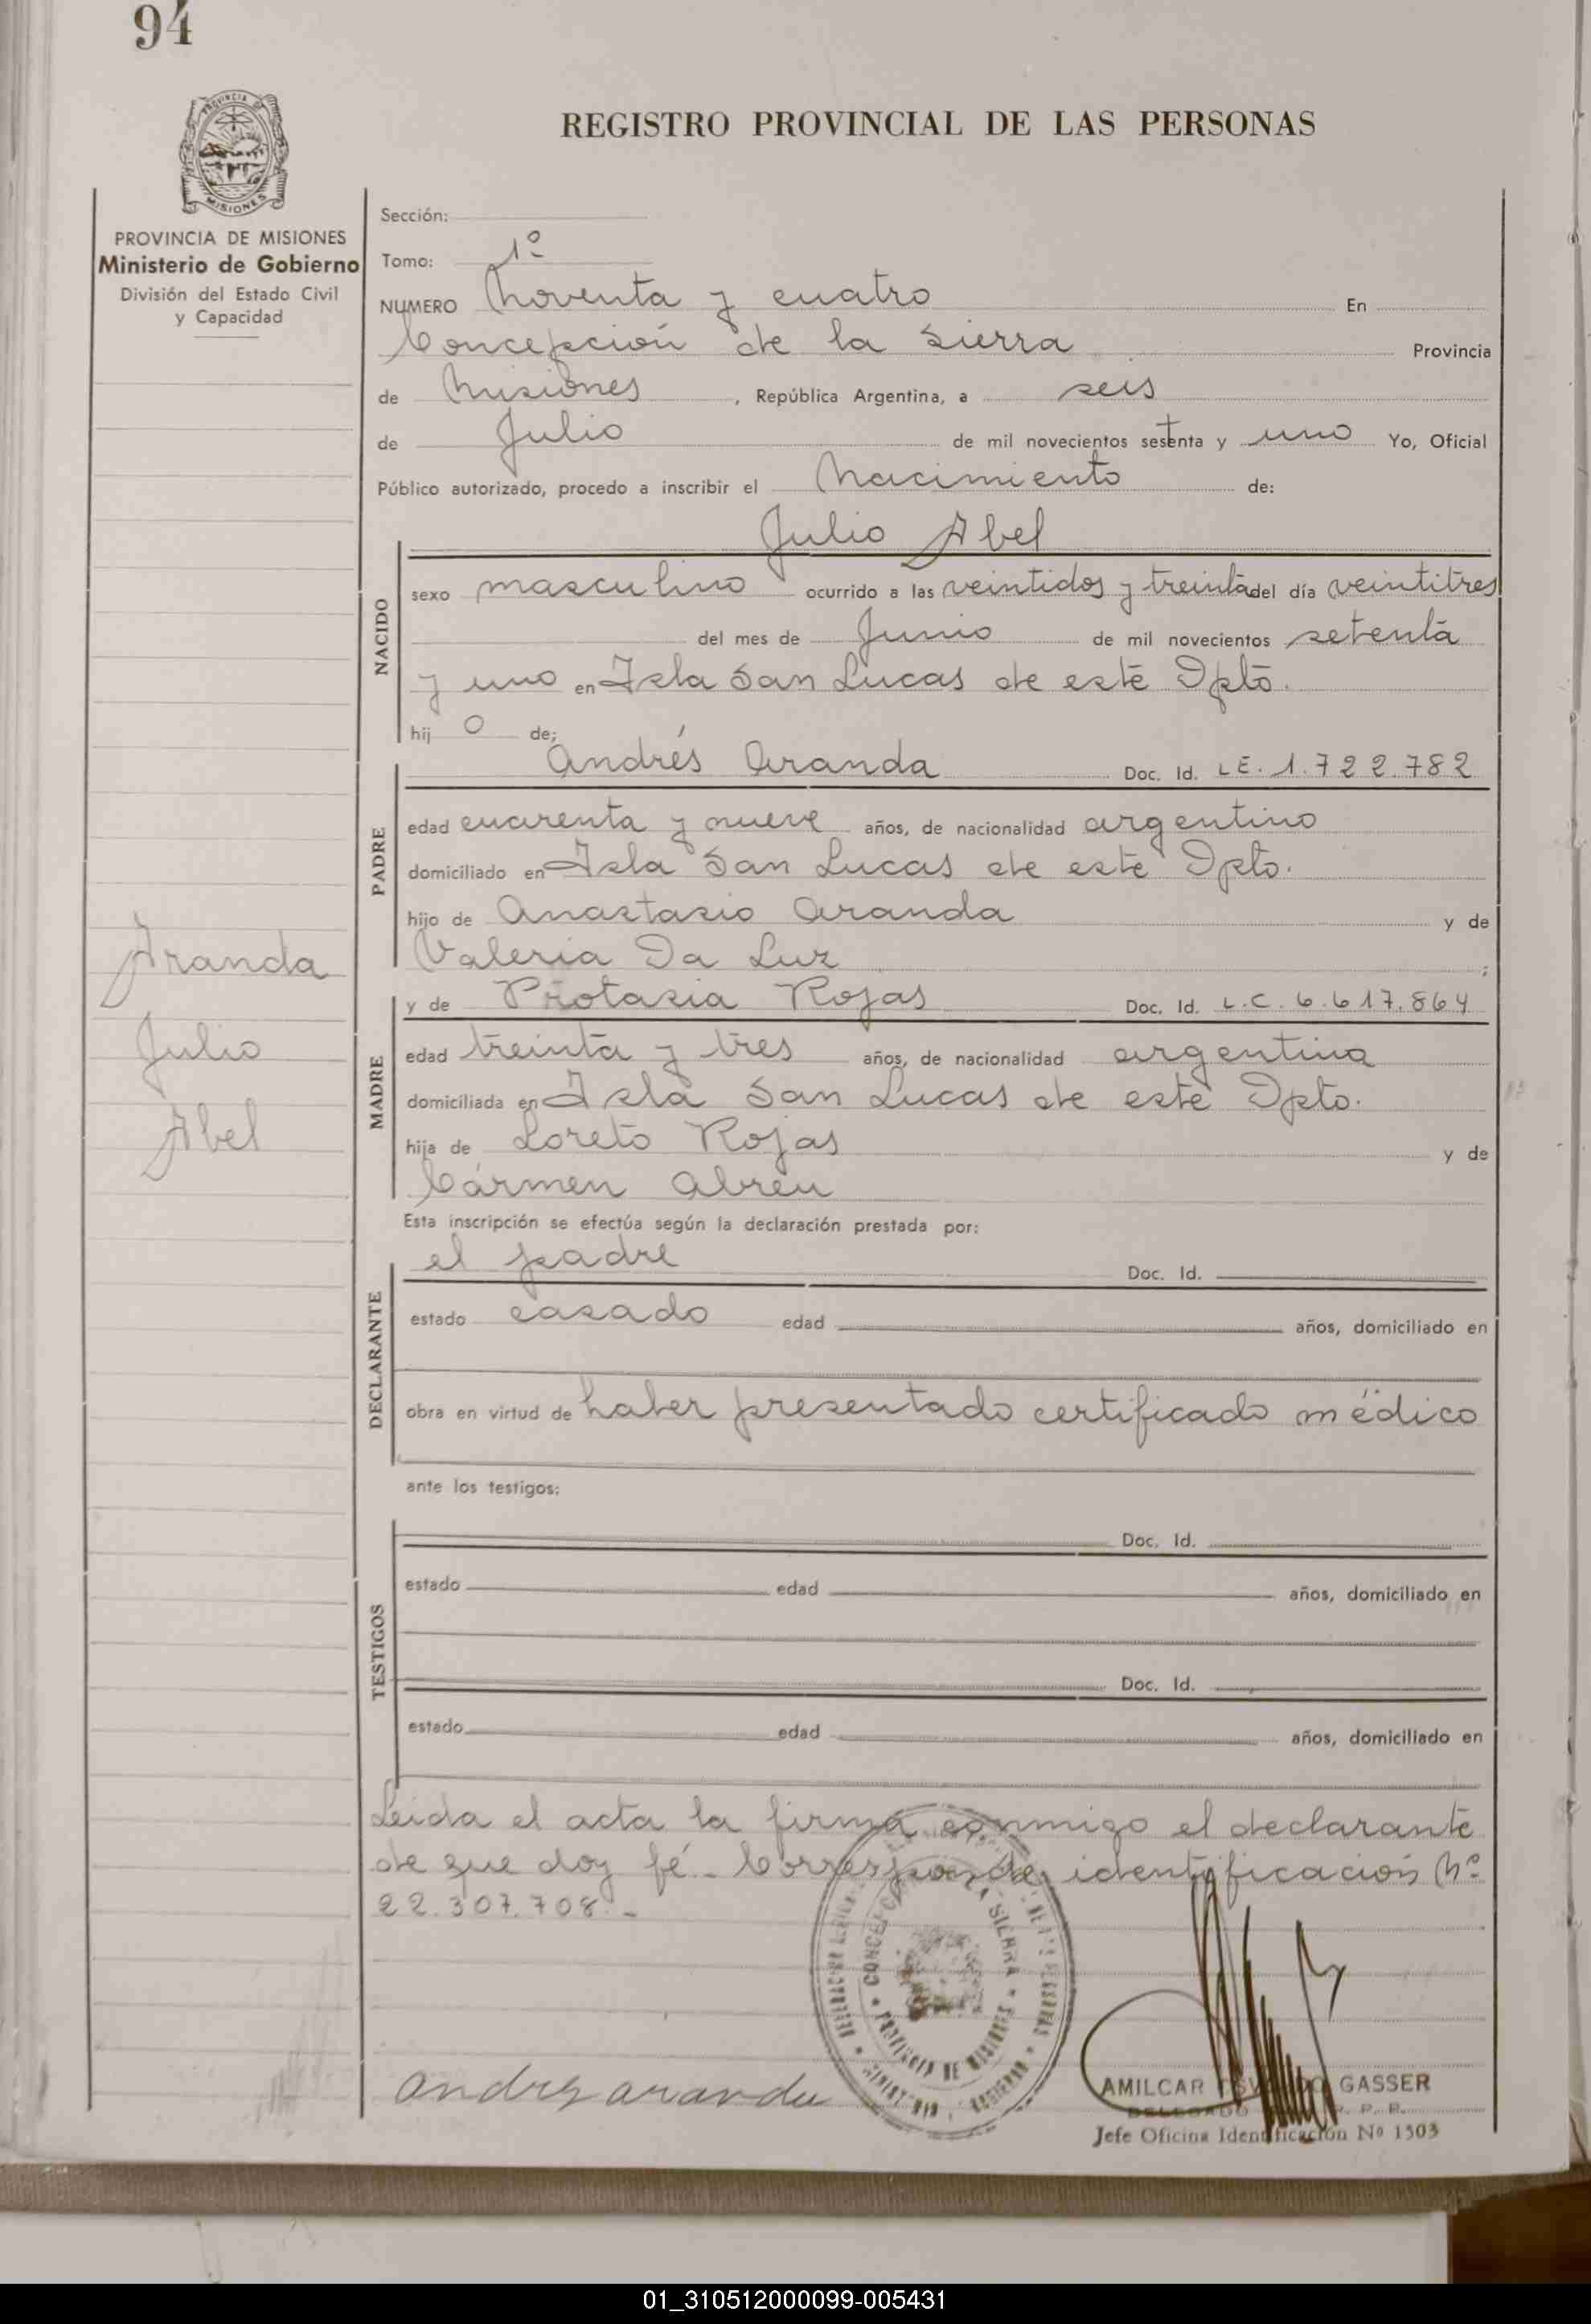 94
REGISTRO PROVINCIAL DE LAS PERSONAS
PROVINCIA
MISIONES
PROVINCIA DE MISIONES
Ministerio de Gobierno
División del Estado Civil
y Capacidad
Sección:
Tomo: 1º
NUMERO Noventa y cuatro En
Concepción de la Sierra Provincia
de Misiones, República Argentina, a seis
de Julio de mil novecientos setenta y uno Yo, Oficial
Público autorizado, procedo a inscribir el Nacimiento de:
Julio Abel
NACIDO
sexo masculino ocurrido a las veintidos y treinta del día veintitres
del mes de Junio de mil novecientos setenta
y uno en Isla San Lucas de este Dpto.
hij o de;
PADRE
Andrés Aranda Doc. Id. LE. 1.722.782
edad cuarenta y nueve años, de nacionalidad argentino
domiciliado en Isla San Lucas de este Dpto.
hijo de Anastasio Aranda y de
Valeria Da Luz ;
MADRE
y de Protasia Rojas Doc. Id. L.C. 6.617.864
edad treinta y tres años, de nacionalidad argentina
domiciliada en Isla San Lucas de este Dpto.
hija de Loreto Rojas y de
Cármen Abreu
Aranda
Julio
Abel
Esta inscripción se efectúa según la declaración prestada por:
DECLARANTE
el padre Doc. Id.
estado casado edad años, domiciliado en
obra en virtud de haber presentado certificado médico
ante los testigos:
TESTIGOS
Doc. Id.
estado edad años, domiciliado en
Doc. Id.
estado edad años, domiciliado en
Leida el acta la firma conmigo el declarante
de que doy fé.- Corresponde identificación Nº
22.307.708.-
PROVINCIA DE MISIONES
andres aranda
AMILCAR GASSER
DELEGADO R. P. P.
Jefe Oficina Identificación Nº 1503
01_310512000099-005431